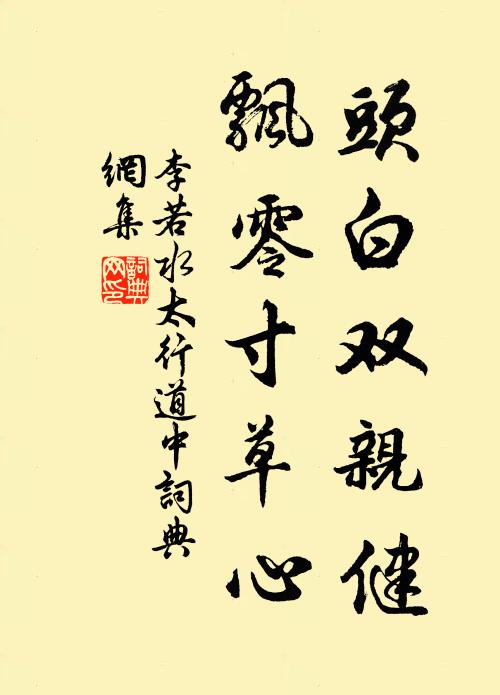 頭白双親健
飄零寸草心
李若水太行道中詞典
網集
詞典
网印